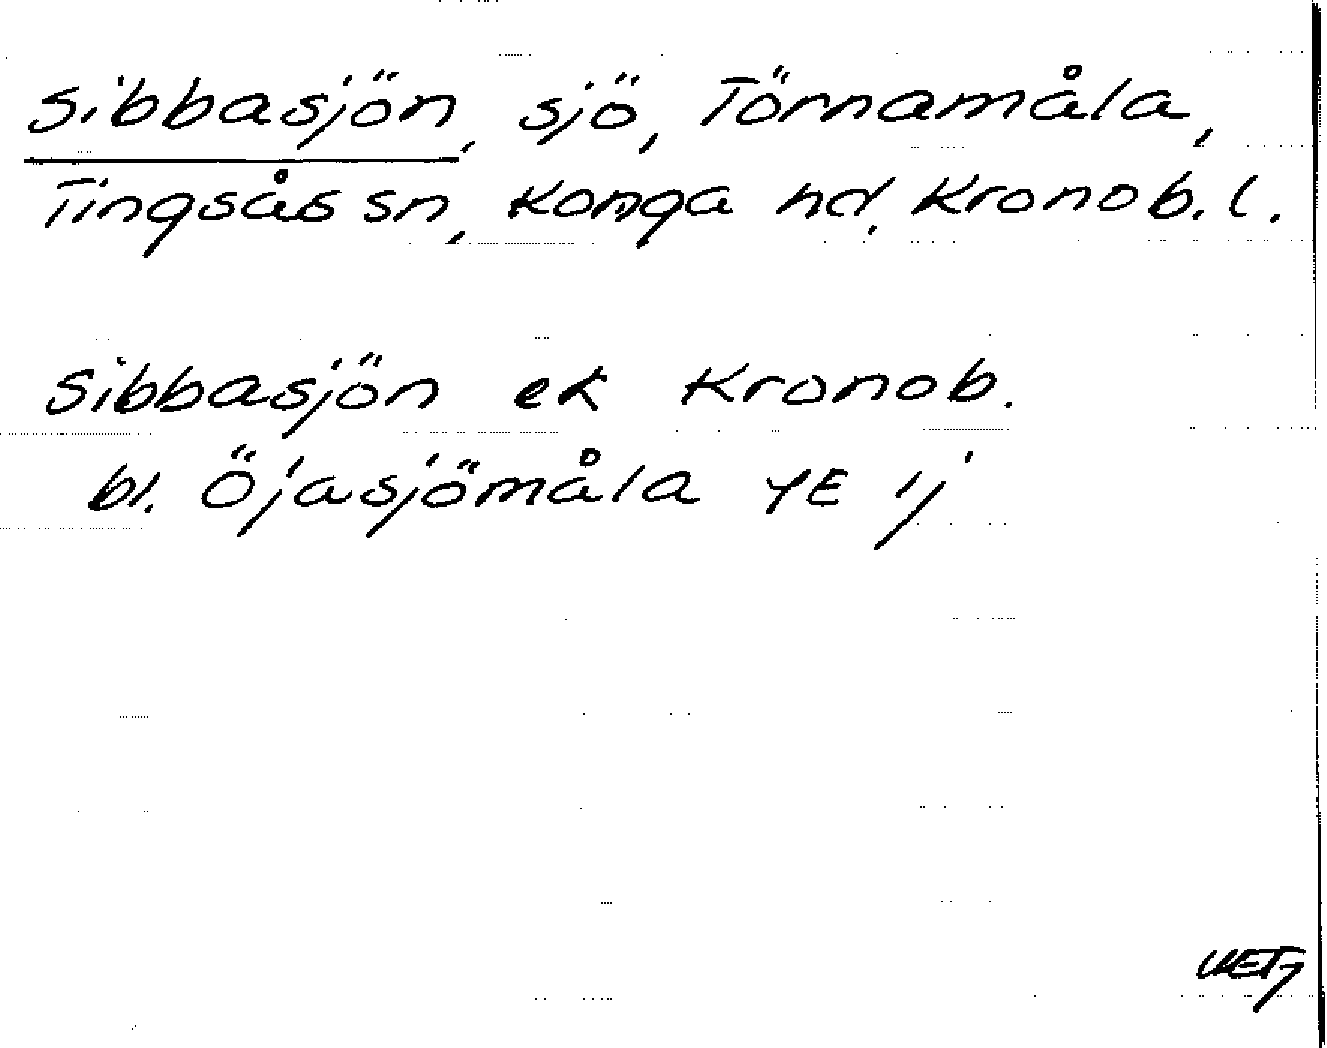 Sibbasjön, sjö, Törnamåla,
Tingsås sn, Konga hd, Kronob. l.
Sibbasjön ek Kronob.
bl. Öjasjömåla 4E ij